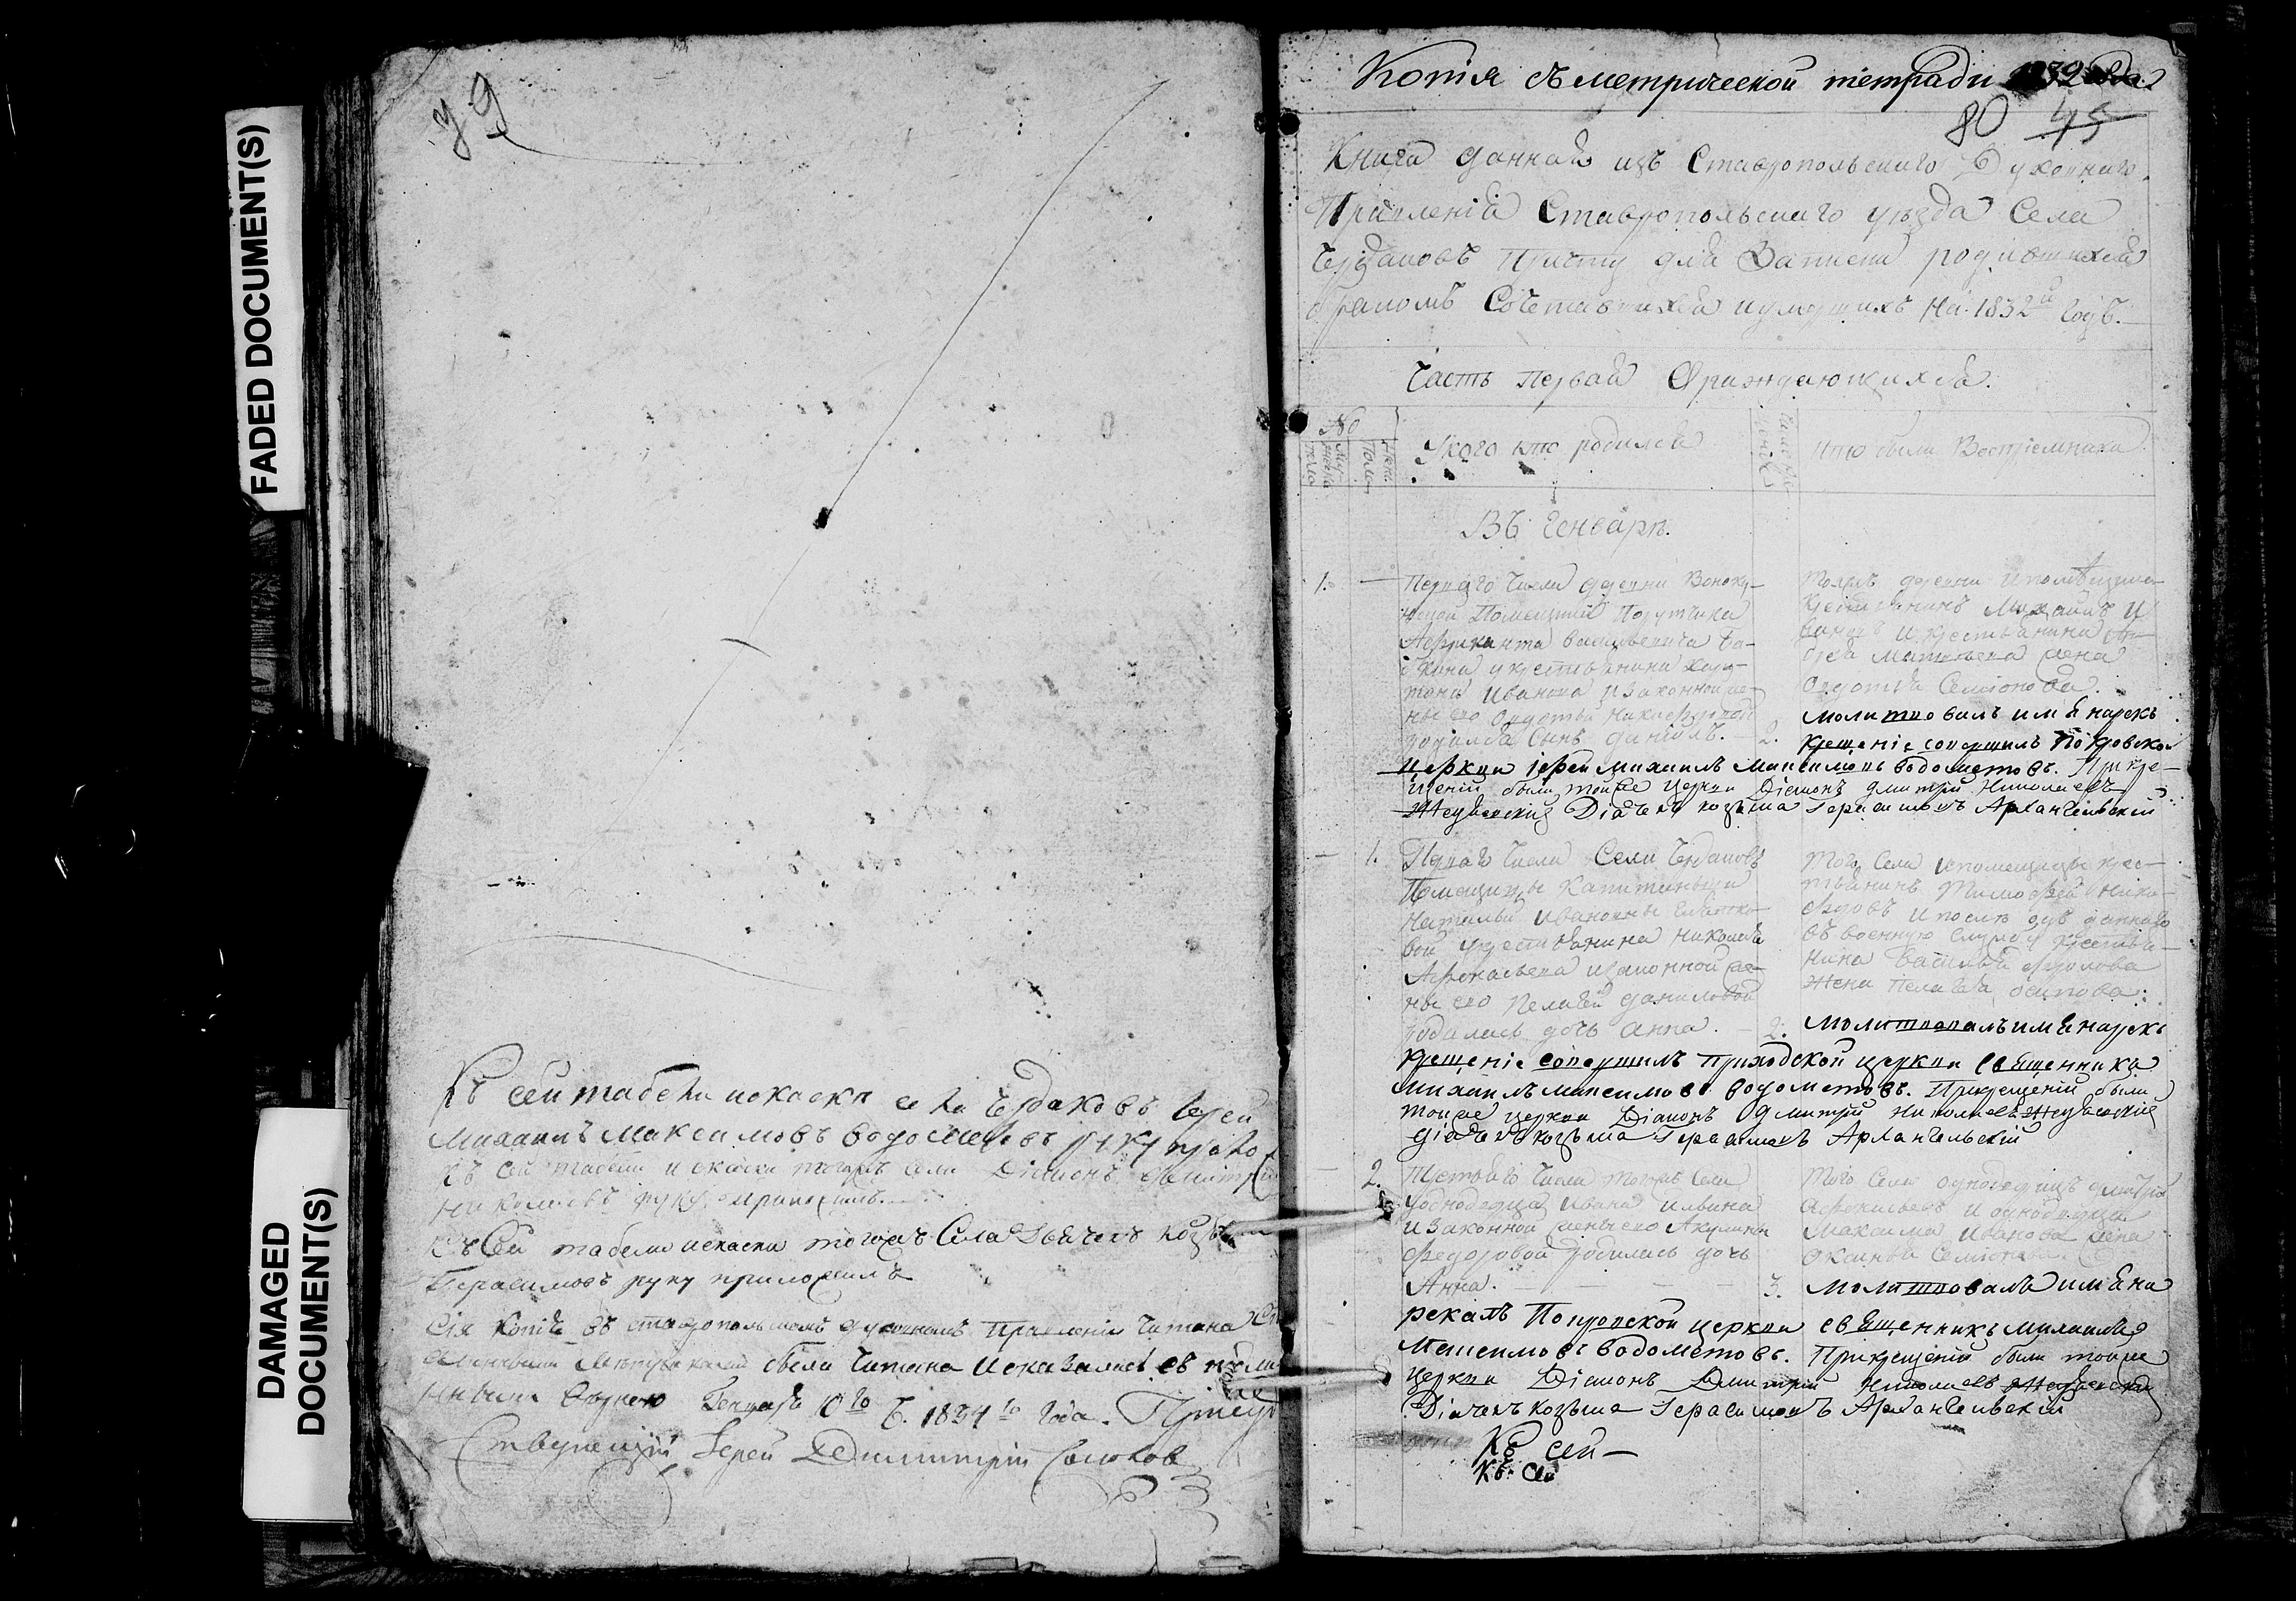 FADED DOCUMENT(S)
DAMAGED
DOCUMENT(S)
79
Къ сей табели искаски села Чердаковъ Іерей
Михаилъ Максимовъ Водометовъ руку прило
къ сей табели искаски тогожъ села Діаконъ Димитрій
Николаевъ руку приложилъ.
Къ Сей табели искаски тогожъ Села Дьячекъ козьма
Герасимовъ руку приложилъ
Сія Копія въ ставропольскомъ духовномъ Правленіи Читана
была Читана И оказалась съ подли
Генваря 10го 1834го Года. Присуд
Ствующій Іерей Димитрій
Копія съ метрической тетради 1832 года
80 45
Книга данная изъ Ставропольскаго Духовнаго
Правленія Ставропольскаго уѣзда Села
Чердаковъ Причту для Записки родившихся
бракомъ Сочетавшихся иумершихъ На 1832й Годъ.
Часть первая Ораждающихся.
№
Укого кто родился
Кто были Воспріемники
Въ Генварѣ.
1. — Перваго Числа деревни Виноку-
Помещика Порутчика
Васильевича
укрестьянина хари-
тона Иванова изаконной же-
ны его Никифоровой
родился Сынъ
Тояжъ деревни ипомѣщика
Крестьянинъ Михаилъ И
икрестьянина Ан-
дрея Матвеева жена
Семіонова.
2. молитвовалъ имя нарекъ
Крещеніе совершилъ Покровской
Церкви іерей Михаилъ Максимовъ Водометовъ. Прикре-
щеніи были тойже Церкви Діаконъ Дмитрій Николаевъ
Діачекъ козьма Герасимовъ Архангельскій
— 1. Перваго Числа Села Чердаковъ
Помещицы Капитанши
Натальи Ивановны
вой укрестьянина Николая
Афонасьева изаконной же-
ны его Пелагеи Даниловой
родилась дочь Анна. —
Того Села ипомещицы крес-
тьянинъ Тимофей Ники-
форовъ ипомѣ отданнаго
въ военную службу крестья-
нина Василья Фролова
Жена Пелагея Осипова.
2. Молитвовалъ имя нарекъ
крещеніе совершилъ приходской церкви священникъ
Михаилъ Максимовъ Водометовъ. Прикрещеніи были
тойже церкви Діаконъ Дмитрій Николаевъ
Діачекъ козьма Герасимовъ Архангельскій
2. Шестаго Числа тогожъ Села
Уоднодворца Ивана Ильина
изаконной жены его Акулины
Федоровой родилась дочь
Анна.
Того Села однодворецъ Дмитрій
Афонасьевъ и однодворца
Максима Иванова жена
Семіонова
3. Молитвовалъ имя на
рекалъ Покровской церкви священникъ Михаилъ
Максимовъ Водометовъ. Прикрещеніи были тойже
Церкви Діаконъ Дмитрій Николаевъ
Діачекъ козьма Герасимовъ Архангельскій
Къ сей —
Къ. Сей